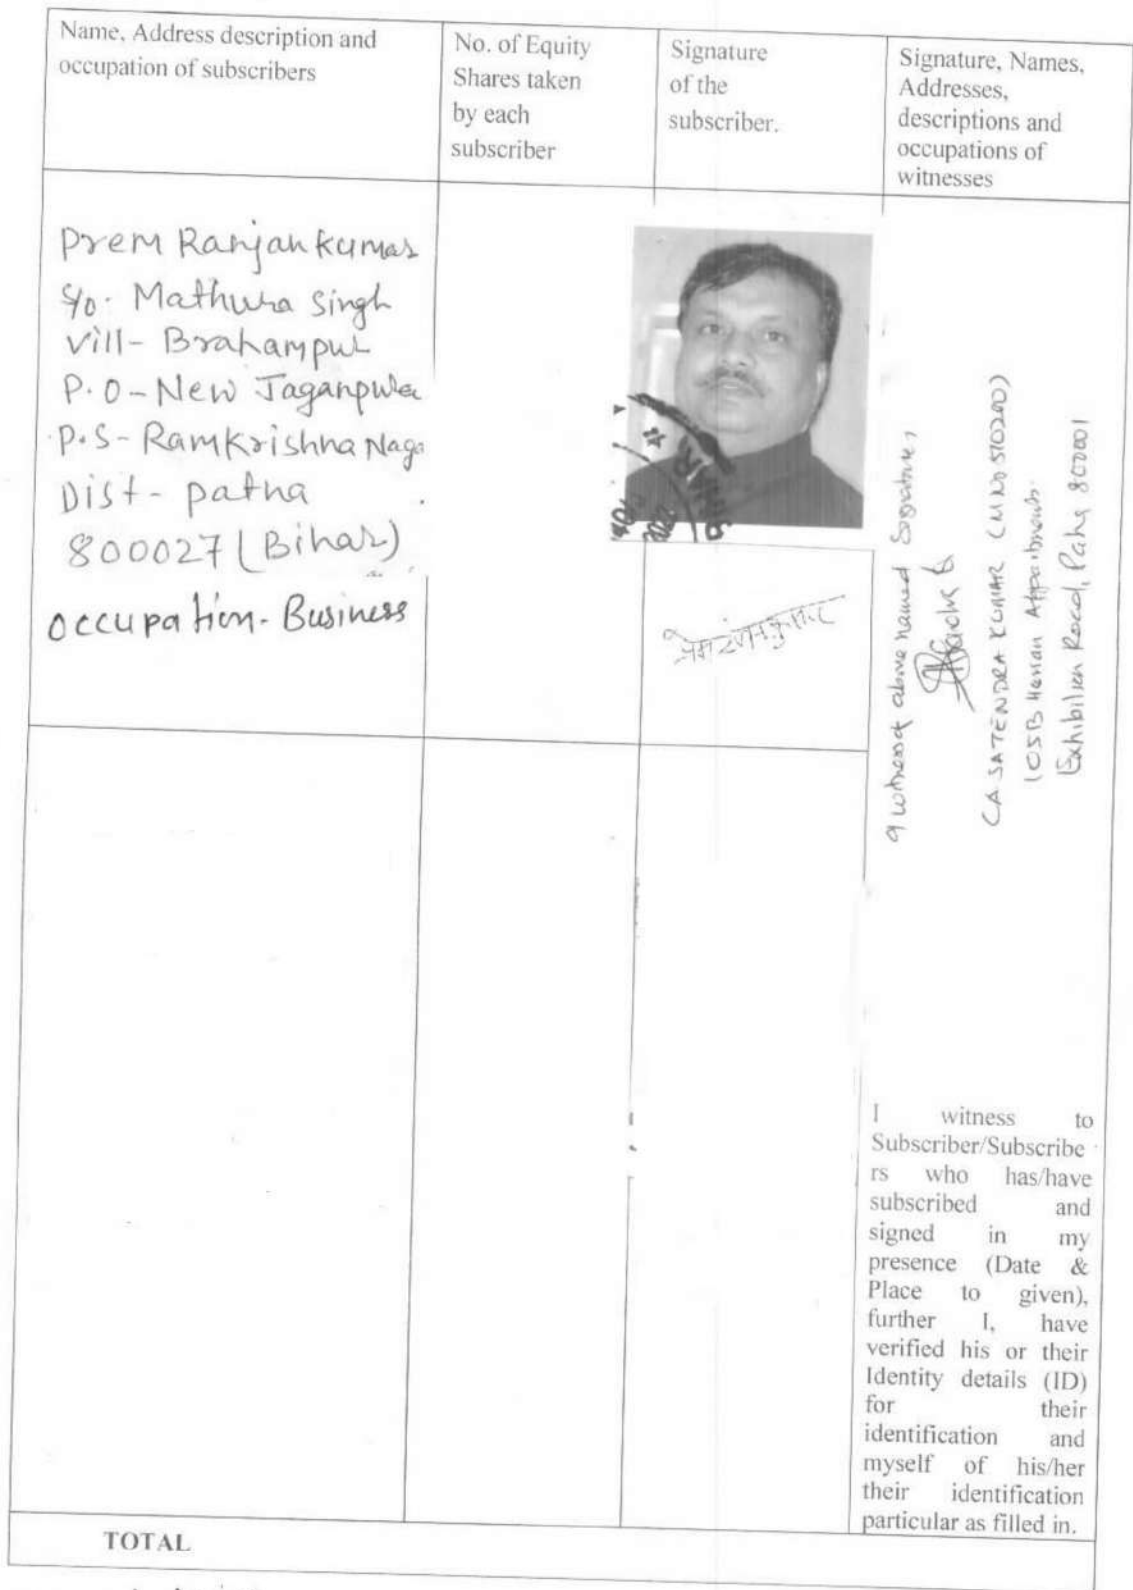 Name, Address description and
occupation of subscribers
No. of Equity
Shares taken
by each
subscriber
Signature
of the
subscriber.
Signature, Names,
Addresses,
descriptions and
occupations of
witnesses
Prem Ranjan kumar
S/o. Mathura Singh
Vill- Brahampur
P.O- New Jaganpura
P.S- RamKrishna Naga
Dist- patna
800027 (Bihar)
occupation- Business
प्रेम रंजन कुमार
above named Signatures
CA SATENDRA KUMAR (M NO 510200)
105B Hassan Appartments
Exhibition Road, Patna 800001
I witness to
Subscriber/Subscribe
rs who has/have
subscribed and
signed in my
presence (Date &
Place to given),
further I, have
verified his or their
Identity details (ID)
for their
identification and
myself of his/her
their identification
particular as filled in.
TOTAL